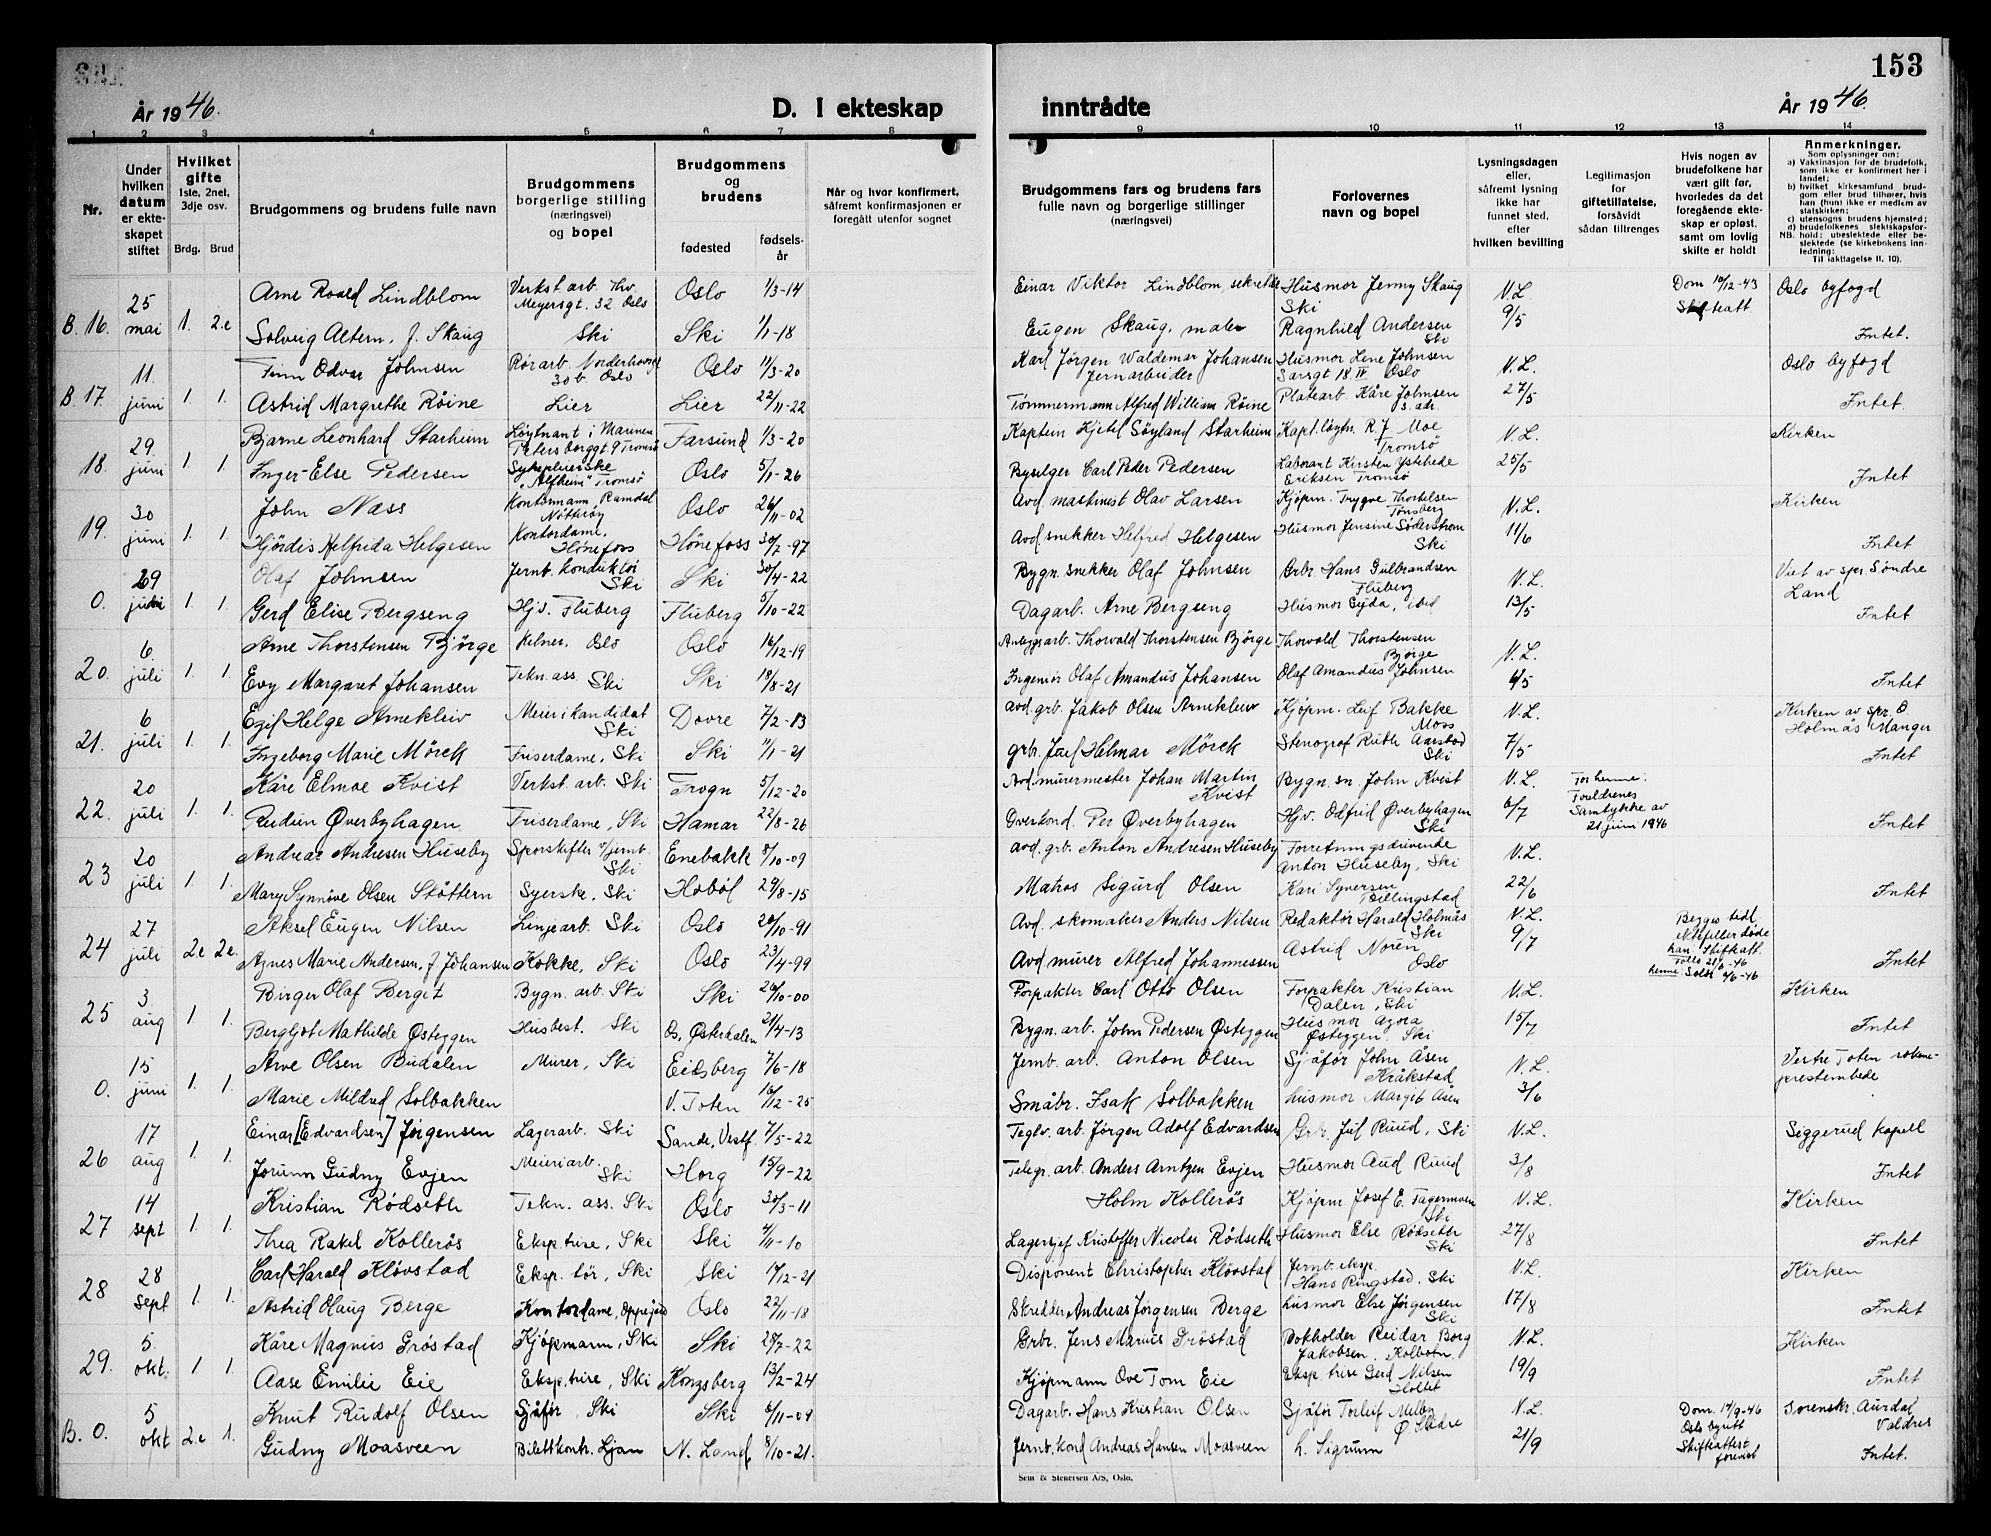 153
År 1946.
D. I ekteskap
inntrådte
År 1946.
1 2 3 4 5 6 7 8
9 10 11 12 13 14
Nr.
Under hvilken datum er ekteskapet stiftet
Hvilket gifte
1ste, 2net, 3dje osv.
Brdg. Brud
Brudgommens og brudens fulle navn
Brudgommens borgerlige stilling (næringsvei) og bopel
Brudgommens og brudens
fødested
fødselsår
Når og hvor konfirmert, såfremt konfirmasjonen er foregått utenfor sognet
Brudgommens fars og brudens fars fulle navn og borgerlige stillinger (næringsvei)
Forlovernes navn og bopel
Lysningsdagen eller, såfremt lysning ikke har funnet sted, efter hvilken bevilling
Legitimasjon for giftetillatelse, forsåvidt sådan tiltrenges
Hvis nogen av brudefolkene har vært gift før, hvorledes da det foregående ekteskap er opløst, samt om lovlig skifte er holdt
Anmerkninger.
Som oplysninger om:
a) Vaksinasjon for de brudefolk, som ikke er konfirmert her i landet;
b) hvilket kirkesamfund brudgom eller brud tilhører, hvis han (hun) ikke er medlem av statskirken;
c) utensogns brudens hjemsted;
d) brudefolkenes slektskapsforhold: ubeslektede eller beslektede (se kirkebokens innledning:
NB.
Til iakttagelse II. 10).
B. 16. 25 mai 1. 2.e Arne Roald Lindblom Verkst. arb. Thv. Meyersgt. 32 Oslo Oslo 1/3-14 Einar Viktor Lindblom, sekretær Husmor Jenny Skaug Ski V.L. 9/5 Dom 10/12-43 Skifteatt. Oslo byfogd
Solveig Altern, f. Skaug Ski Ski 1/1-18 Eugen Skaug, maler Ragnhild Andersen Ski Intet.
B. 17. 11. juni 1. 1. Finn Odvar Johnsen Rørarb. 30b Oslo Oslo 11/3-20 Karl Jørgen Waldemar Johansen Jernarbeider Husmor Lene Johnsen Sarsgt 18 IV Oslo V.L. 27/5 Oslo byfogd
Astrid Margrethe Röine Lier Lier 22/11-22 Tømmermann Alfred William Röine Platearb. Kåre Johnsen s. adr. Intet.
18. 29. juni 1. 1. Bjarne Leonhard Starheim Løytnant i Marinen Petersborggt 9 Tromsø Farsund 1/3-20 Kaptein Kjetil Söyland Starheim Kapt. løytn. R. J. Moe Tromsø V.L. 25/5 Kirken
Inger-Else Pedersen Sykepleierske "Alfheim" Tromsø Oslo 5/1-26 Byselger Carl Peder Pedersen Laborant Kirsten Ystehede Eriksen Tromsø Intet
19. 30 juni 1. 1. John Næss Kontormann Ramdal Nøtterøy Oslo 26/11-02 Avd. maskinist Olav Larsen Kjøpm. Trygve Thorkelsen Tønsberg V.L. 11/6 Kirken
Hjördis Alfrida Helgesen Kontordame, Hønefoss Hönefoss 30/7-97 Avd. snekker Helfred Helgesen Husmor Jensine Söderstrøm Ski Intet
0. 29 juni 1. 1. Olaf Johnsen Jernb. konduktør Ski Ski 30/4-22 Bygn. snekker Olaf Johnsen Grbr. Hans Gulbrandsen Fluberg V.L. 13/5 Viet av spr. Søndre Land
Gerd Elise Bergseng Hjv. Fluberg Fluberg 5/10-22 Dagarb. Arne Bergseng Husmor Eyda, ibid Intet
20. 6. juli 1. 1. Arne Thorstensen Bjørge Kelner, Oslo Oslo 16/12-19 Anleggsarb. Thorvald Thorstensen Bjørge Thorvald Thorstensen Bjørge V.L. 6/5
Evy Margaret Johansen Tekn. ass. Ski Ski 18/8-21 Ingeniør Olaf Amandus Johansen Olaf Amandus Johnsen Intet
21. 6 juli 1. 1. Egil Helge Arnekleiv Meierikandidat Ski Dovre 7/2-13 Avd. grb. Jakob Olsen Arnekleiv Kjøpm. Leif Bakke Moss V.L. 7/5 Kirken av spr. O Holmås Manger
Ingeborg Marie Mörck Friserdame, Ski Ski 11/1-21 grb. Juul Helmar Mörck Stenograf Ruth Aarstad Ski Intet
22. 20 juli 1. 1. Kåre Elmoe Kvist Verkst. arb. Ski Frogn 5/12-20 Avd. murermester Johan Martin Kvist Bygn. sn. John Kvist V.L. 6/7 For henne: Foreldrenes Samtykke av 21 juni 1946
Reidun Øverbyhagen Friserdame, Ski Hamar 22/8-26 Overkond. Per Øverbyhagen Hjv. Odfrid Øverbyhagen Ski Intet
23 20 juli 1. 1. Andreas Andresen Huseby Sporskifter v/jernb. Ski Enebakk 8/10-09 Avd. grb. Anton Andresen Huseby Forretningsdrivende Anton Huseby, Ski V.L. 22/6
Mary Synnöve Olsen Støttern Syerske, Ski Hobøl 29/8-15 Matros Sigurd Olsen Kari Syversen Billingstad Intet
24 27 juli 2e 2e. Aksel Eugen Nilsen Linjearb. Ski Oslo 20/10-91 Avd. skomaker Anders Nilsen Redaktør Harald Holmås Ski V.L. 9/7 Begges tidl. ektefeller døde han: Skifteatt. Follo 21/6-46 henne: Solør 4/6-46
Agnes Marie Andersen, f. Johansen Kokke, Ski Oslo 23/4-99 Avd murer Alfred Johannessen Astrid Norén Oslo Intet
25 3 aug 1. 1. Birger Olaf Bergit Bygn. arb. Ski Ski 26/10-00 Forpakter Carl Otto Olsen Forpakter Kristian Dalen, Ski V.L. 15/7 Kirken
Bergljot Mathilde Østeggen Husbest. Ski Os, Østerdalen 21/4-13 Bygn. arb. John Pedersen Østeggen Husmor Agora Østeggen Ski Intet
0. 15 juni 1. 1. Arve Olsen Budalen Murer, Ski Eidsberg 7/6-18 Jernb. arb. Anton Olsen Sjåfør John Åsen Kråkstad V.L. 3/6 Vestre Toten sokneprestembede
Marie Mildred Solbakken V. Toten 16/12-25 Småbr. Isak Solbakken husmor Margit Åsen
26 17 aug 1. 1. Einar [Edvardsen] Jørgensen Lagerarb. Ski Sande, Vestf. 7/5-22 Teglv. arb. Jörgen Adolf Edvardsen Grbr. Juul Ruud, Ski V.L. 3/8 Siggerud kapell
Jorunn Gudny Evjen Meieriarb. Ski Horg 15/9-22 Telegr. arb. Anders Arntzen Evjen Husmor Aud Ruud Intet
27 14 sept 1. 1. Kristian Rödseth Tekn. ass. Ski Oslo 30/3-11 Holm Kollerös Kjøpm. Josef E. Fagermoen Ski V.L. 27/8 Kirken
Thea Rakel Kollerös Eksp.trise, Ski Ski 4/11-10 Lagersjef Kristoffer Nicolai Rödseth Husmor Else Rødseth Ski Intet
28 28 sept 1. 1. Carl Harald Kløvstad Eksp. tør, Ski Ski 14/12-21 Disponent Christopher Kløvstad Jernb. eksp. Hans Ringstad. Ski V.L. 17/8 Kirken
Astrid Olaug Berge Kontordame, Oppegård Oslo 22/11-18 Skredder Andreas Jørgensen Berge husmor Else Jørgensen Ski Intet
29. 5. okt. 1. 1. Kåre Magnus Grøstad Kjøpmann, Ski Ski 28/7-22 Grbr. Jens Marius Grøstad Bokholder Reidar Borg Jakobsen, Kolbotn V.L. 19/9 Kirken
Aase Emilie Eie Eksp.trise, Ski Kongsberg 13/2-24 Kjøpmann Ove Tom Eie Eksp. trise Gerd Nilsen Holtet Intet
B. 0. 5 okt 2.e 1. Knut Rudolf Olsen Sjåfør, Ski Ski 6/11-09 Dagarb. Hans Kristian Olsen Sjåfør Torleif Melby Ø. Slidre V.L. 21/9 Dom. 14/9-46 Oslo byrett Skifteattest forevist Sorenskr. Aurdal Valdres
Gudny Moasveen Billettkontr. Ljan N. Land 8/10-21. Jernb. kond Andreas Hansen Moasveen h. Sigrunn Intet.
Sem & Stenersen A/S, Oslo.